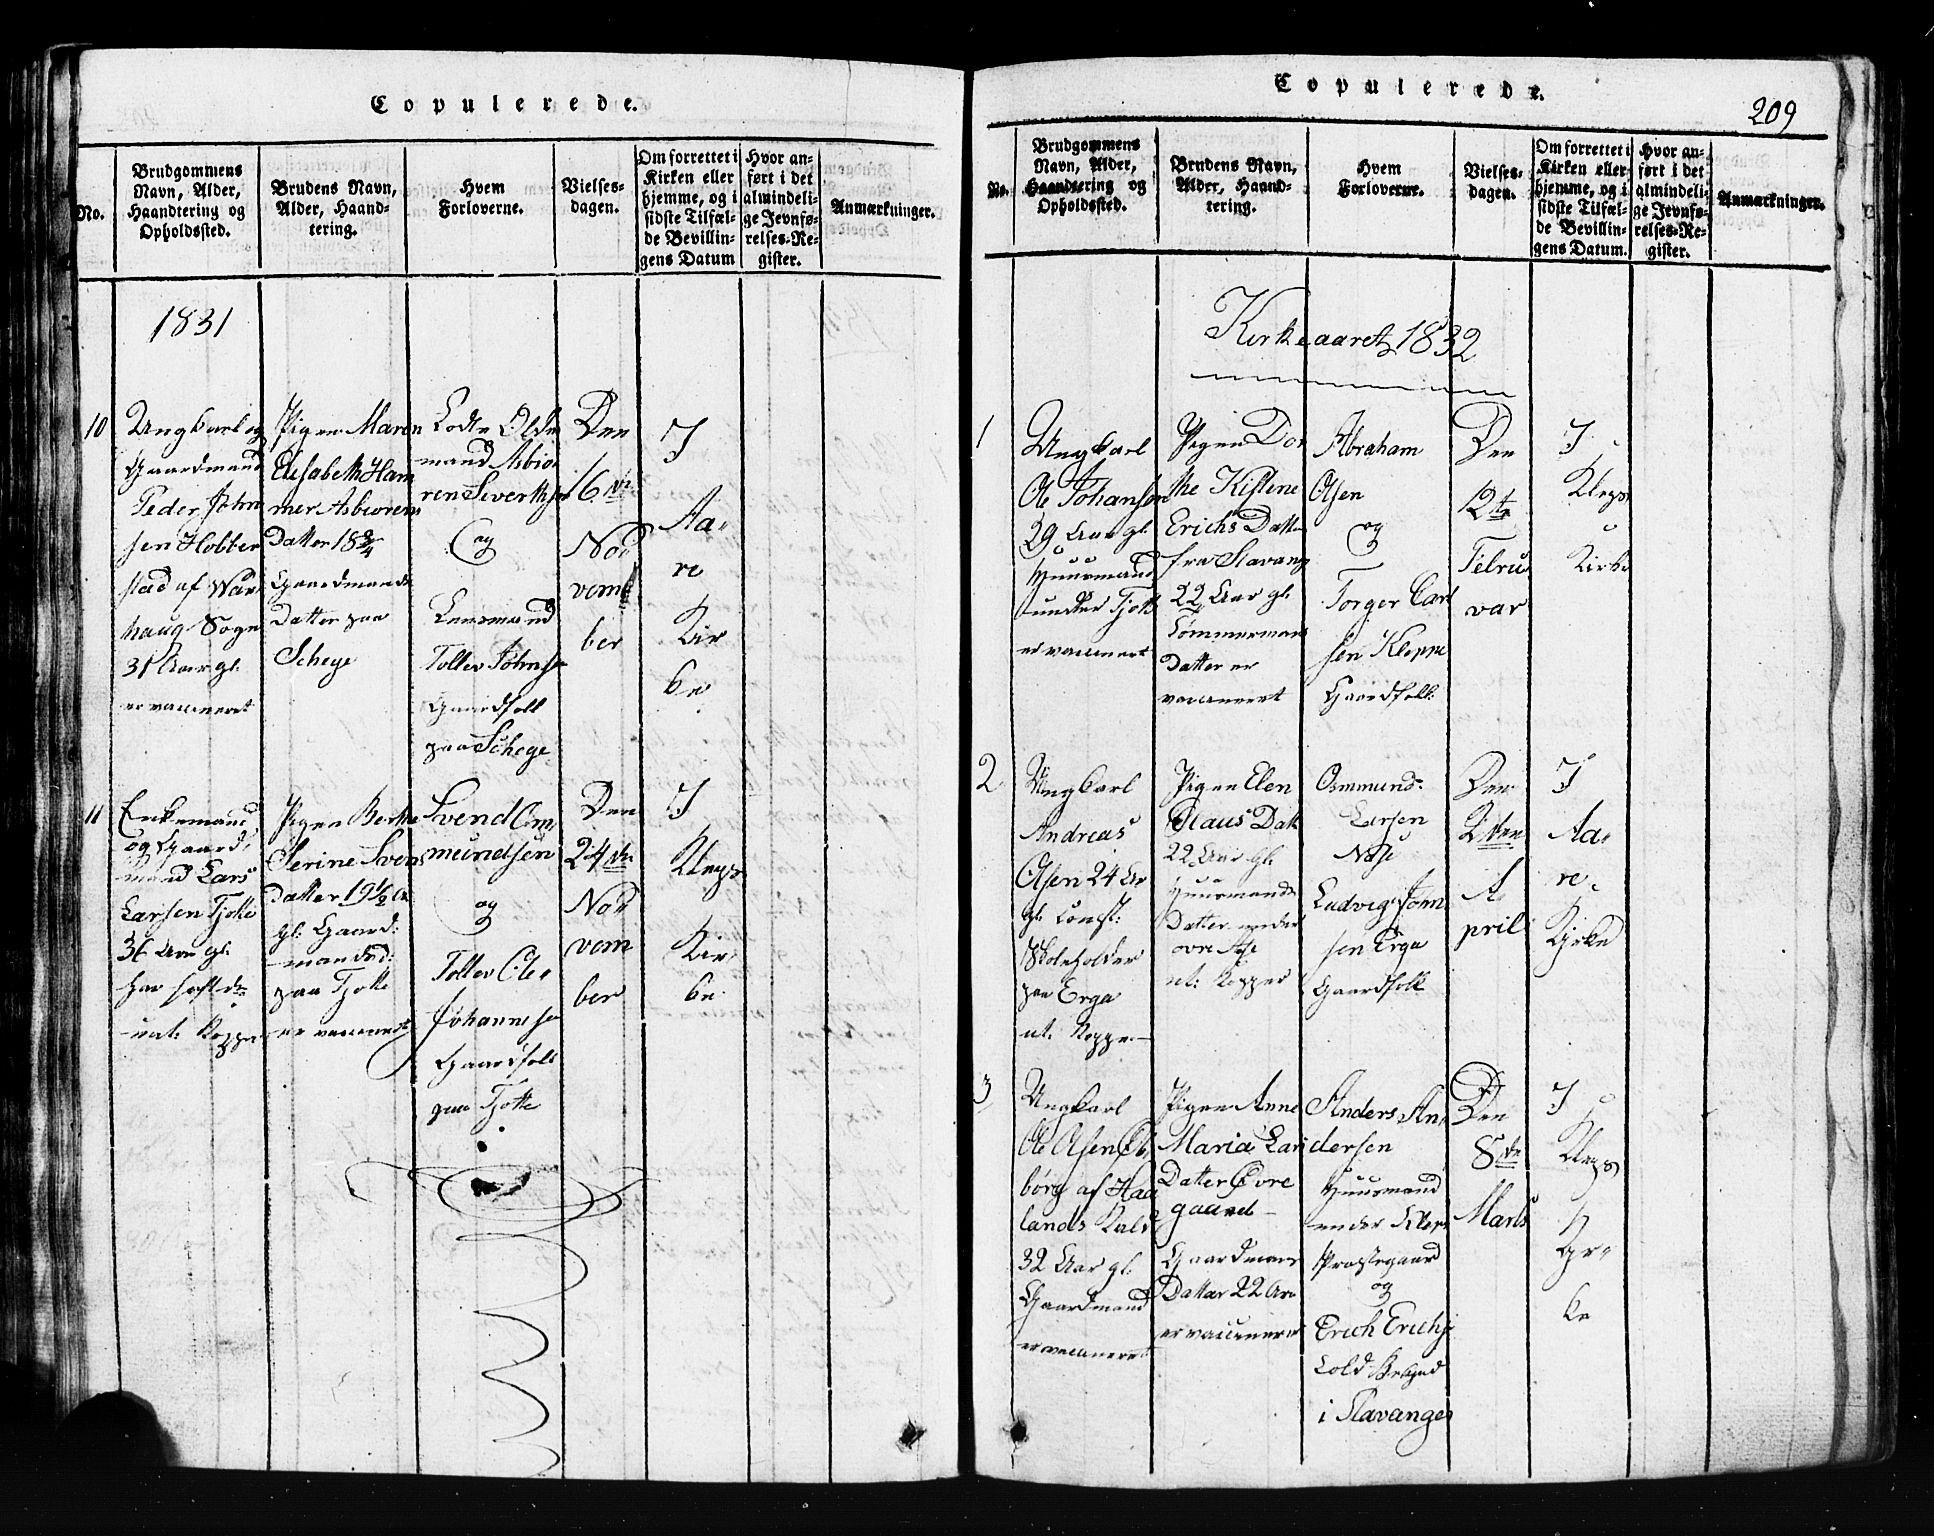 Copulerede.
No.
Brudgommens
Navn, Alder,
Haandtering og
Opholdssted.
Brudens Navn,
Alder, Haand-
tering.
Hvem
Forloverne.
Vielses-
dagen.
Om forrettet i
Kirken eller
hjemme, og i
sidste Tilfæl-
de Bevillin-
gens Datum
Hvor an-
ført i det
almindeli-
ge Jevnfø-
relses-Re-
gister.
Anmærkninger.
1831
10
Ungkarl og
Gaardmand
Peder John
sen Hobber
stad af War
haug Sogn
31 Aar gl.
er vaccineret
Pigen Maren
Elisabeth Ham
mer Asbiorens
Datter 18 3/4
Gaardmands
Datter paa
Schege
mand Asbiø
ren Siverthsen
og
Lensmand
Tollev Johnsen
Gaardfolk
paa Schege
Den
16de
No
vem
ber
I
Aa
re
Kir
ke
11
Enkemand
og Gaard
mand Lars
Larsen Tjøtte
36 Aar gl.
nat. Kopper
Pigen Berthe
Serine Svens
Datter 19 1/2 Aar
gl. Gaard-
mands
paa Tjøtte
er vaccineret
Svend Om
mundsen
og
Tollev Ole
Johannesen
Gaardfolk
paa Tjøtte
Den
24de
No
vem
ber
I
Klep
Kir
ke
Copulerede.
209
No.
Brudgommens
Navn, Alder,
Haandtering og
Opholdssted.
Brudens Navn,
Alder, Haand-
tering.
Hvem
Forloverne.
Vielses-
dagen.
Om forrettet i
Kirken eller
hjemme, og i
sidste Tilfæl-
de Bevillin-
gens Datum.
Hvor an-
ført i det
almindeli-
ge Jevnfø-
relses-Re-
gister.
Anmærkninger.
Kirkeaaret 1832
1
Ungkarl
Ole Johansen
29 Aar gl.
Huusmand
under Tjøtt
er vaccineret
Pigen Dor
the Kistine
Erichs Datter
fra Stavang
22 Aar gl.
Tømmermans
Datter er
vaccineret
Abraham
Olsen
og
Torger Carl
sen Kleppe
Gaardfolk
Den
12te
Febru
var
I
Kleps
Kirke
2
Ungkarl
Andreas
Olsen 24 Aar
gl. Const:
Skoleholder
paa Erga
nt. Kopper
Pigen Elen
Claus Datt
22 Aar gl.
Huusmands
Datter under
nt. Kopper
Osmund
Larsen
Næse
Ludvig John
sen Erga
Gaardfolk
Den
A
pril
I
Aa
re
Kirke
3
Ungkarl
børg af Haa
lands Kald
32 Aar gl.
Gaardmand
er vaccineret
Pigen Anne
Maria Lars
Datter Øvre
gaard
Gaardmans
Datter 22 Aar
er vaccineret
Anders An
dersen
Huusmand
under Klep
Præstegaard
og
Erich Erichs
Toldbetjend
i Stavanger
Den
8de
Marts
I
Kleps
Kir
ke